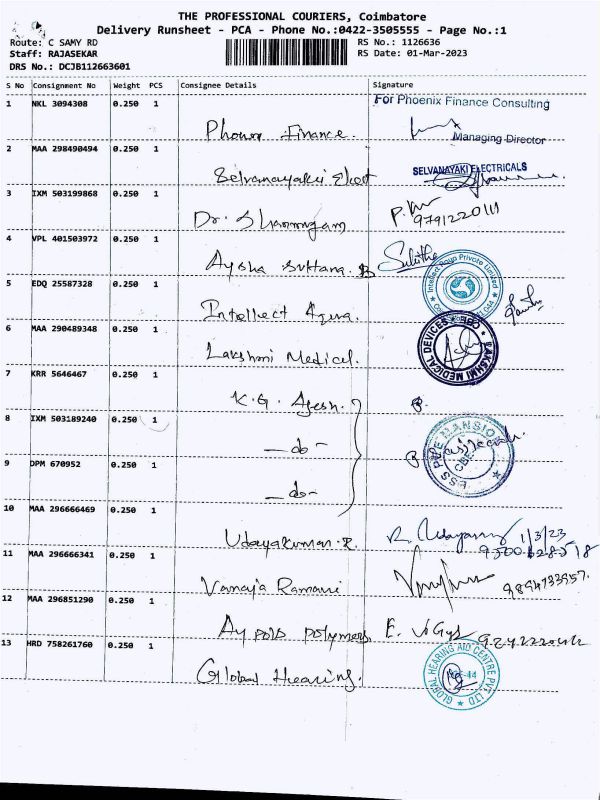 THE PROFESSIONAL COURIERS, Coimbatore
Delivery Runsheet - PCA - Phone No.:0422-3505555 - Page No.:1
Route: C SAMY RD
Staff: RAJASEKAR
DRS No.: DCJB112663601
RS No.: 1126636
RS Date: 01-Mar-2023
S No Consignment No Weight PCS Consignee Details Signature
1 NKL 3094308 0.250 1
For Phoenix Finance Consulting
Managing Director
Finance.
2 MAA 298490494 0.250 1
SELVANAYAKI ELECTRICALS
Selvanayaki Elect
3 IXM 503199868 0.250 1
Dr. Shanmugam
4 VPL 401503972 0.250 1
Aysha Sultana. B
5 EDQ 25587328 0.250 1
Intellect
6 MAA 290489348 0.250 1
LAKSHMI MEDICAL DEVICES
Lakshmi Medical.
7 KRR 5646467 0.250 1
K.G.
8 IXM 503189240 0.250 1
- do -
9 DPM 670952 0.250 1
- do -
10 MAA 296666469 0.250 1
Udayakumar.R 1/3/23
11 MAA 296666341 0.250 1
Vanaja Ramani 9894733957.
12 MAA 296851290 0.250 1
polymers
13 HRD 758261760 0.250 1
GLOBAL HEARING AID CENTRE PVT LTD
Global Hearing.